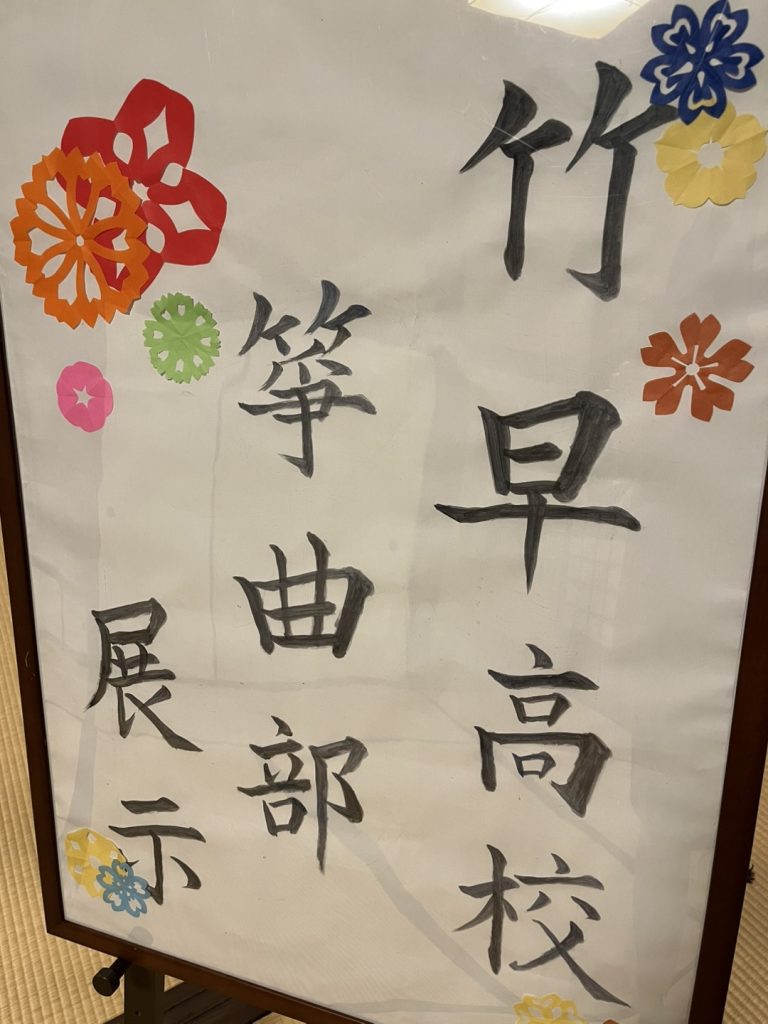 竹早高校
箏曲部
展示